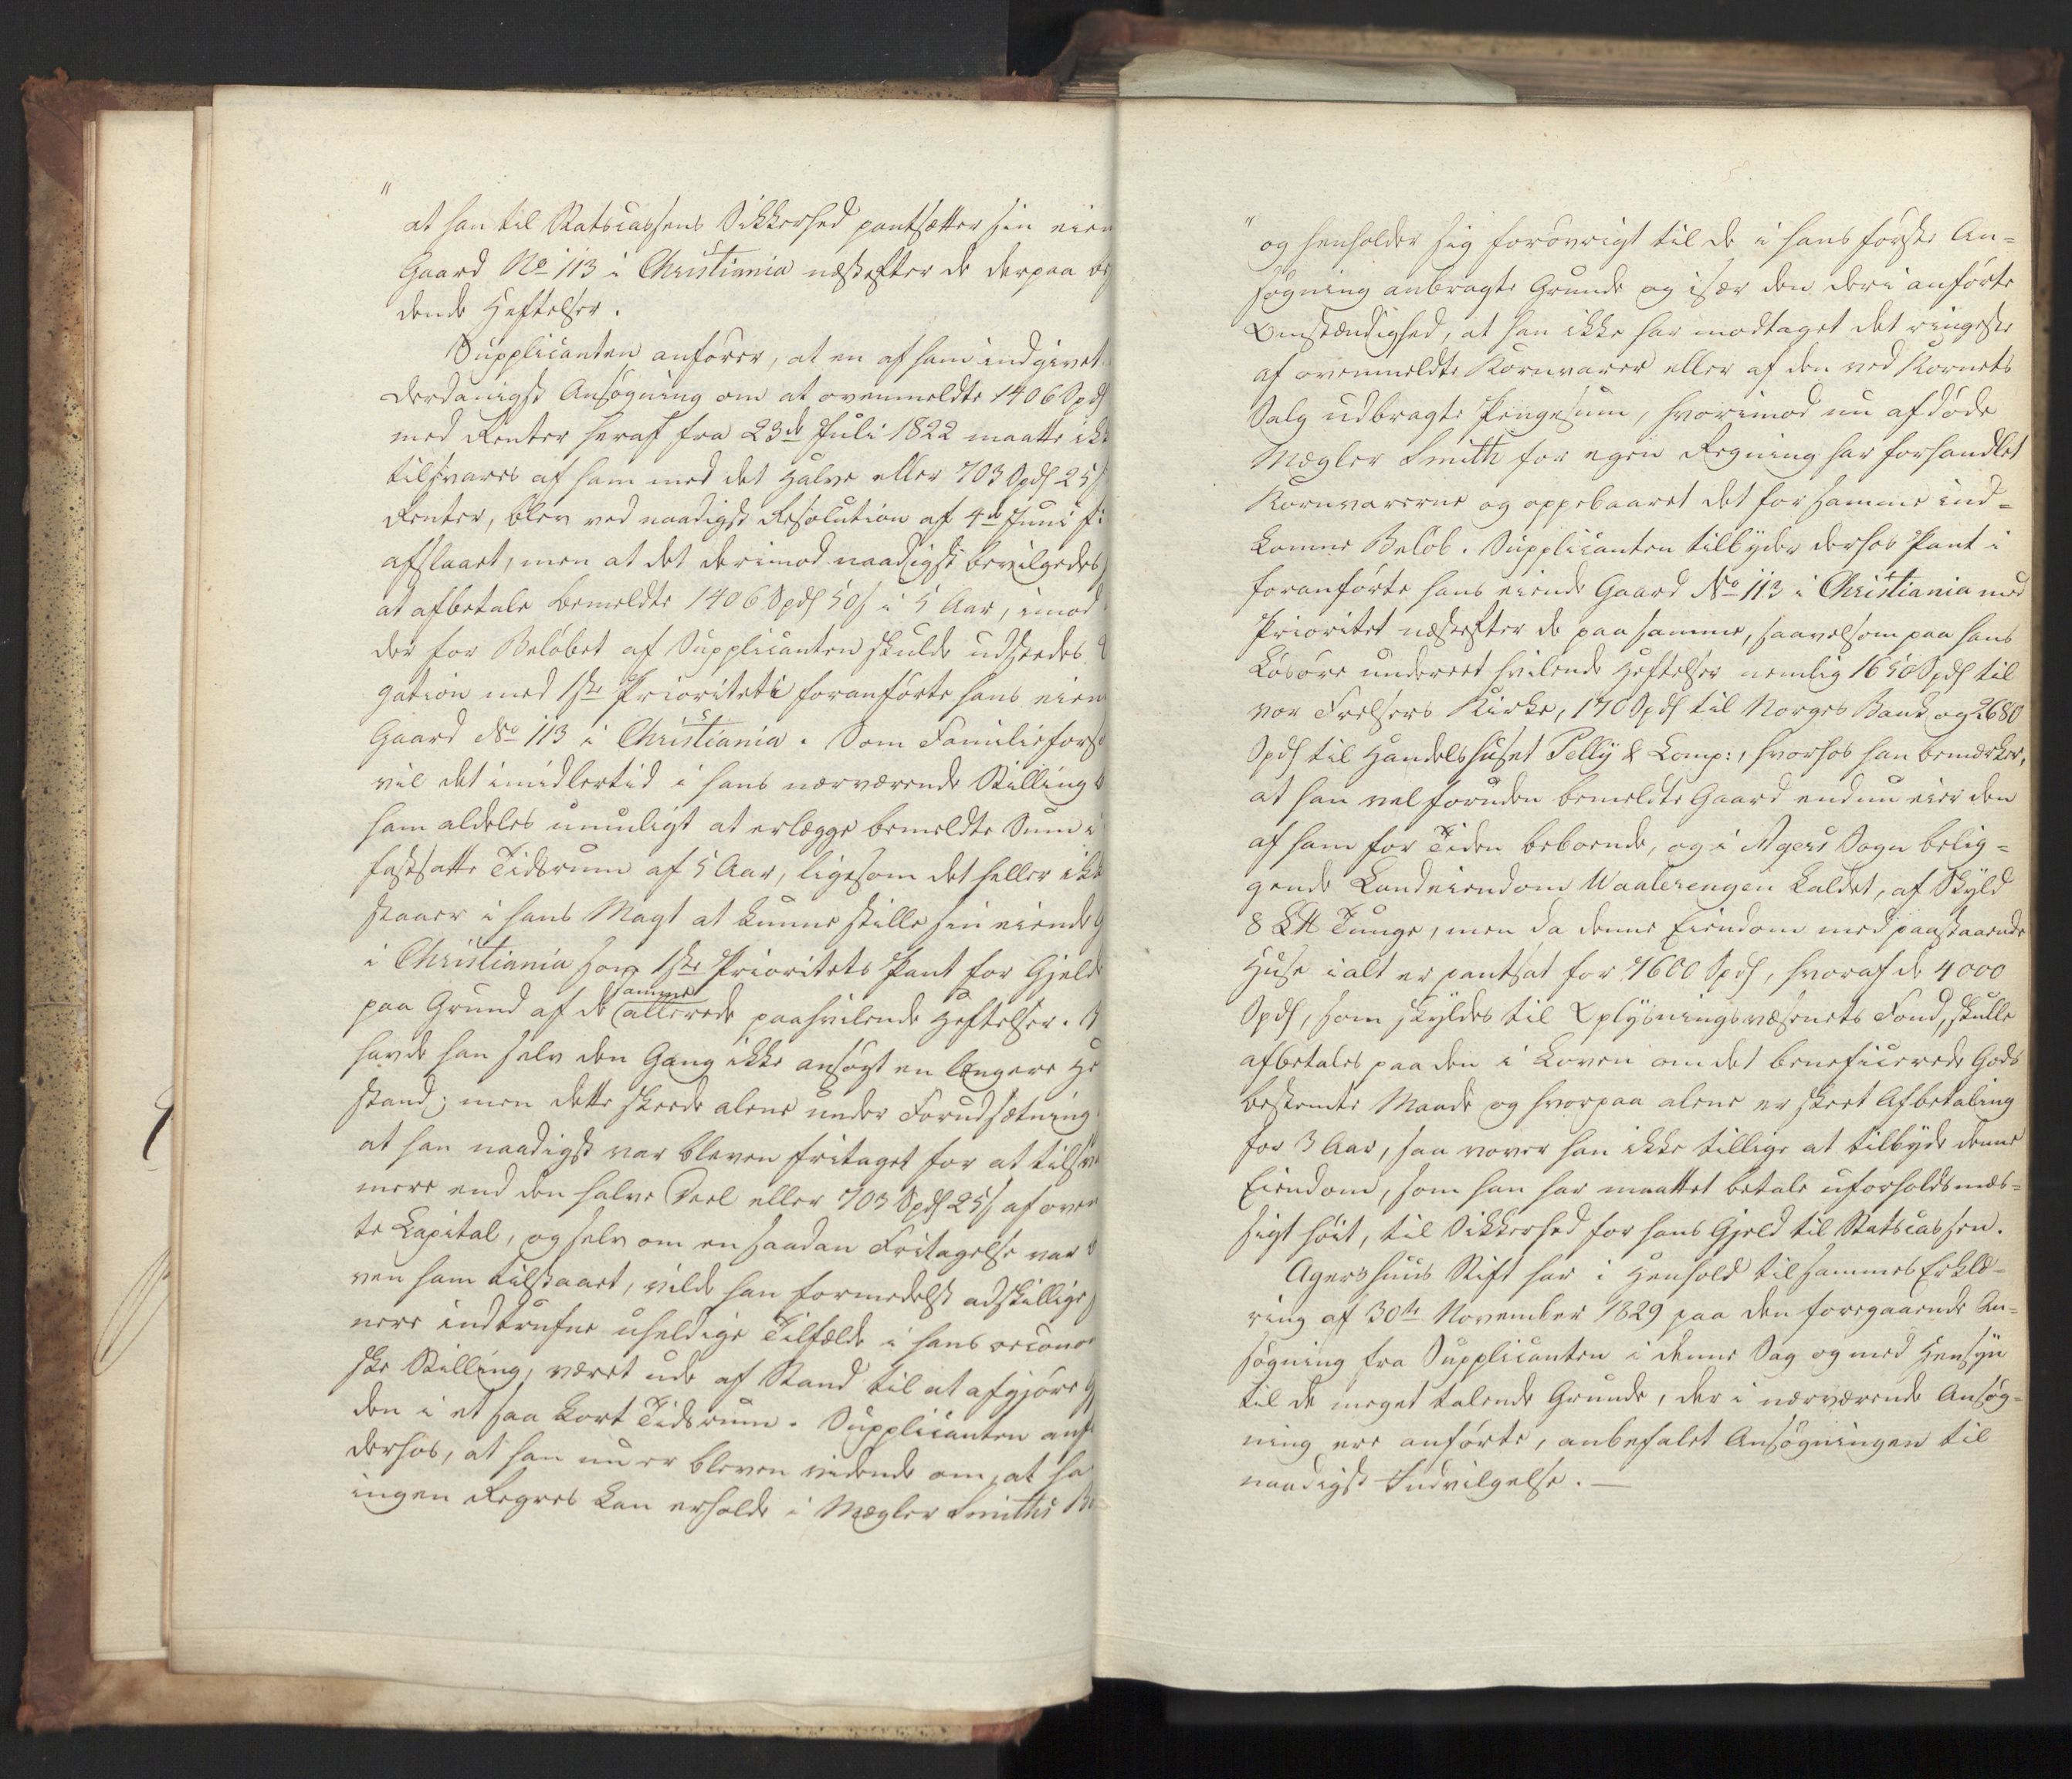 "
at han til Statscassens Sikkerhed pantsætter sin eien
Gaard No 113 i Christiania næstefter de derpaa
dende Heftelser.
Supplicanten anfører, at en af ham indgivet
derdanigst Ansøgning om at ovenmeldte 1406 Spd
med Renter heraf fra 23de Juli 1822 maatte ikk
tilsvares af ham med det Halve eller 703 Spd 25 s
Renter, blev ved naadigst Resolution af 4de Juni f:
afslaaet, men at det derimod naadigst bevilgedes
at afbetale bemeldte 1406 Spd 50 s i 5 Aar, imod
der for Beløbet af Supplicanten skulde udstedes
gation med 1ste Prioritet i foranførte hans eien
Gaard No 113 i Christiania. Som Familieforsø
vil det imidlertid i hans nærværende Stilling
ham aldeles umuligt at erlægge bemeldte Sum i
fastsatte Tidsrum af 5 Aar, ligesom det heller ikk
staaer i hans Magt at kunne stille sin eiende G
i Christiania som 1ste Prioritets Pant for Gjeld
paa Grund af de samme allerede paahvilende Heftelser.
havde han selv den Gang ikke ansøgt en længere He
stand; men dette skeede alene under Forudsætning
at han naadigst var bleven fritaget for at tilsv
mere end den halve Deel eller 703 Spd 25 s af oven
te Capital, og selv om en saadan Fritagelse var
ven ham tilstaaet, vilde han formedelst adskillige
nere indtrufne uheldige Tilfælde i hans oecono
ske Stilling, været ude af Stand til at afgjøre G
den i et saa kort Tidsrum. Supplicanten anf
derhos, at han nu er bleven vidende om, at ha
ingen Regres kan erholde i Mægler Smiths Bo
"
og henholder sig forøvrigt til de i hans første An=
søgning anbragte Grunde og især den deri anførte
Omstændighed, at han ikke har modtaget det ringeste
af ovenmeldte Kornvarer eller af den ved Kornets
Salg udbragte Pengesum, hvorimod nu afdøde
Mægler Smith for egen Regning har forhandlet
Kornvarerne og oppebaaret det for samme ind=
komne Beløb. Supplicanten tilbyder derhos Pant i
foranførte hans eiende Gaard No 113 i Christiania med
Prioritet næstefter de paa samme, saavelsom paa hans
Løsøre undereet hvilende Heftelser nemlig 1650 Spd til
vor Frelsers Kirke, 170 Spd til Norges Bank og 2680
Spd til Handelshuset Pelly & Comp:, hvorhos han bemærker,
at han vel foruden bemeldte Gaard endnu eier den
af ham for Tiden beboende, og i Agers Sogn belig=
gende Landeiendom Waalerengen kaldet, af Skyld
8 L℔ Tunge, men da denne Eiendom med paastaaende
Huse i alt er pantsat for 7600 Spd, hvoraf de 4000
Spd, som skyldes til Oplysningsvæsenets Fond, skulle
afbetales paa den i Loven om det beneficerede Gods
bestemte Maade og hvorpaa alene er skeet Afbetaling
for 3 Aar, saa vover han ikke tillige at tilbyde denne
Eiendom, som han har maattet betale uforholdsmæs=
sigt høit, til Sikkerhed for hans Gjeld til Statscassen.
Agershuus Stift har i Henhold til sammes Erklæ=
ring af 30te November 1829 paa den foregaaende An=
søgning fra Supplicanten i denne Sag og med Hensyn
til de meget talende Grunde, der i nærværende Ansøg=
ning ere anførte, anbefalet Ansøgningen til
naadigst Indvilgelse. —